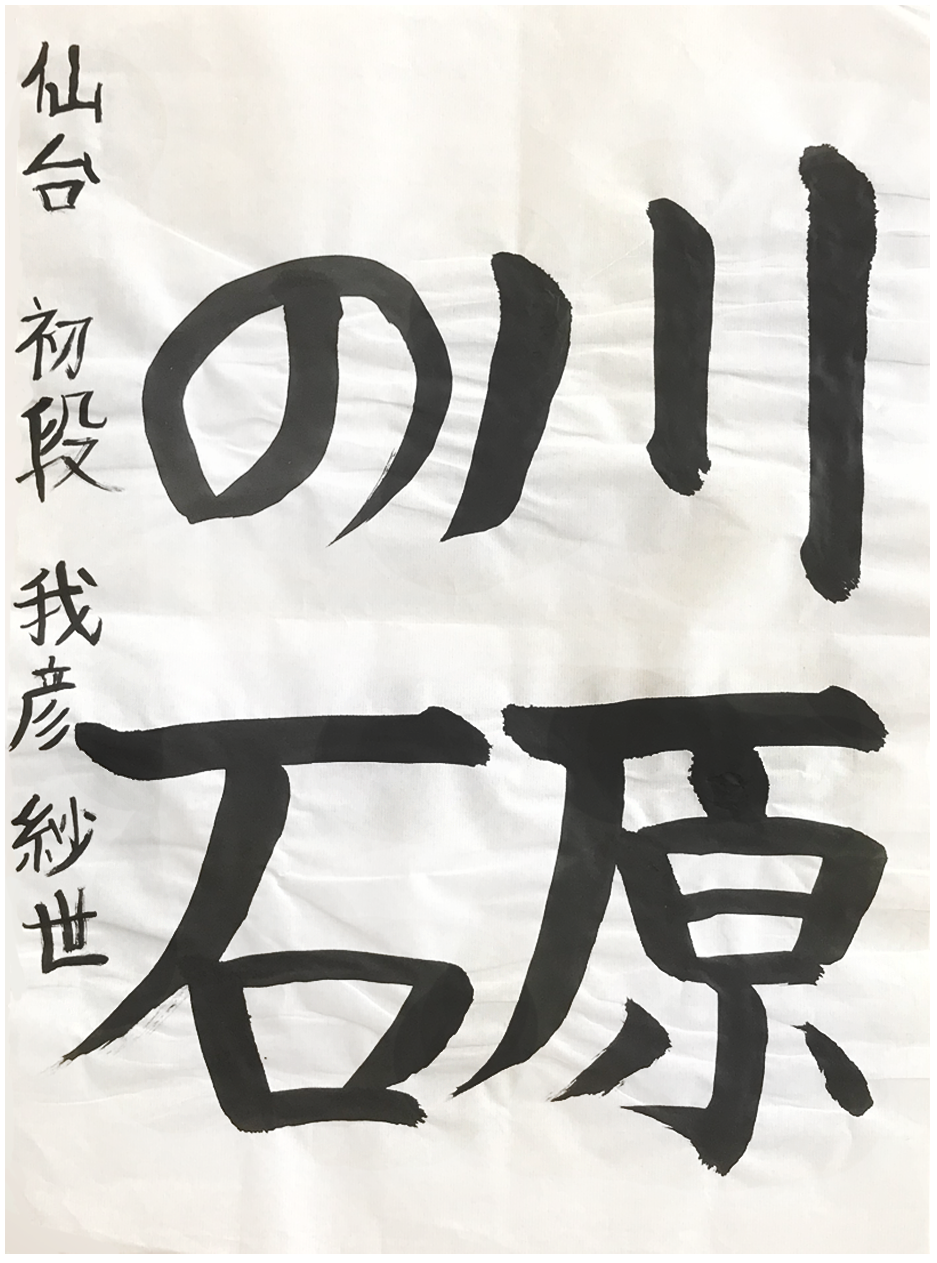 川原
の石
仙台 初段 我彦 紗世